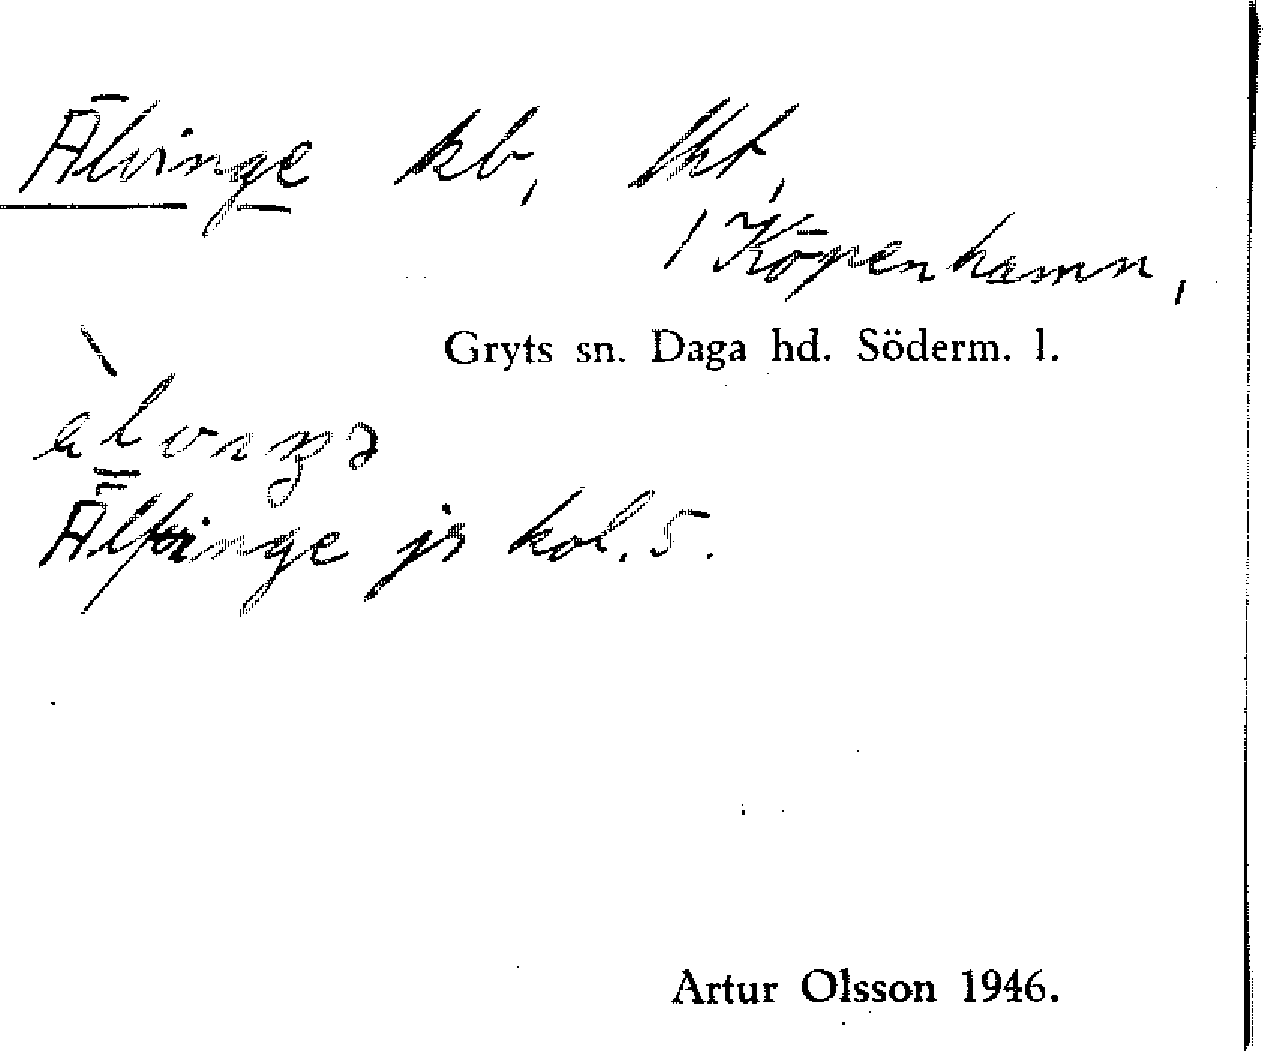 Älvinge kb, lht,
1 Köpenhamn,
Gryts sn. Daga hd. Söderm. l.
Älfvinge js kol. 5.
Artur Olsson 1946.